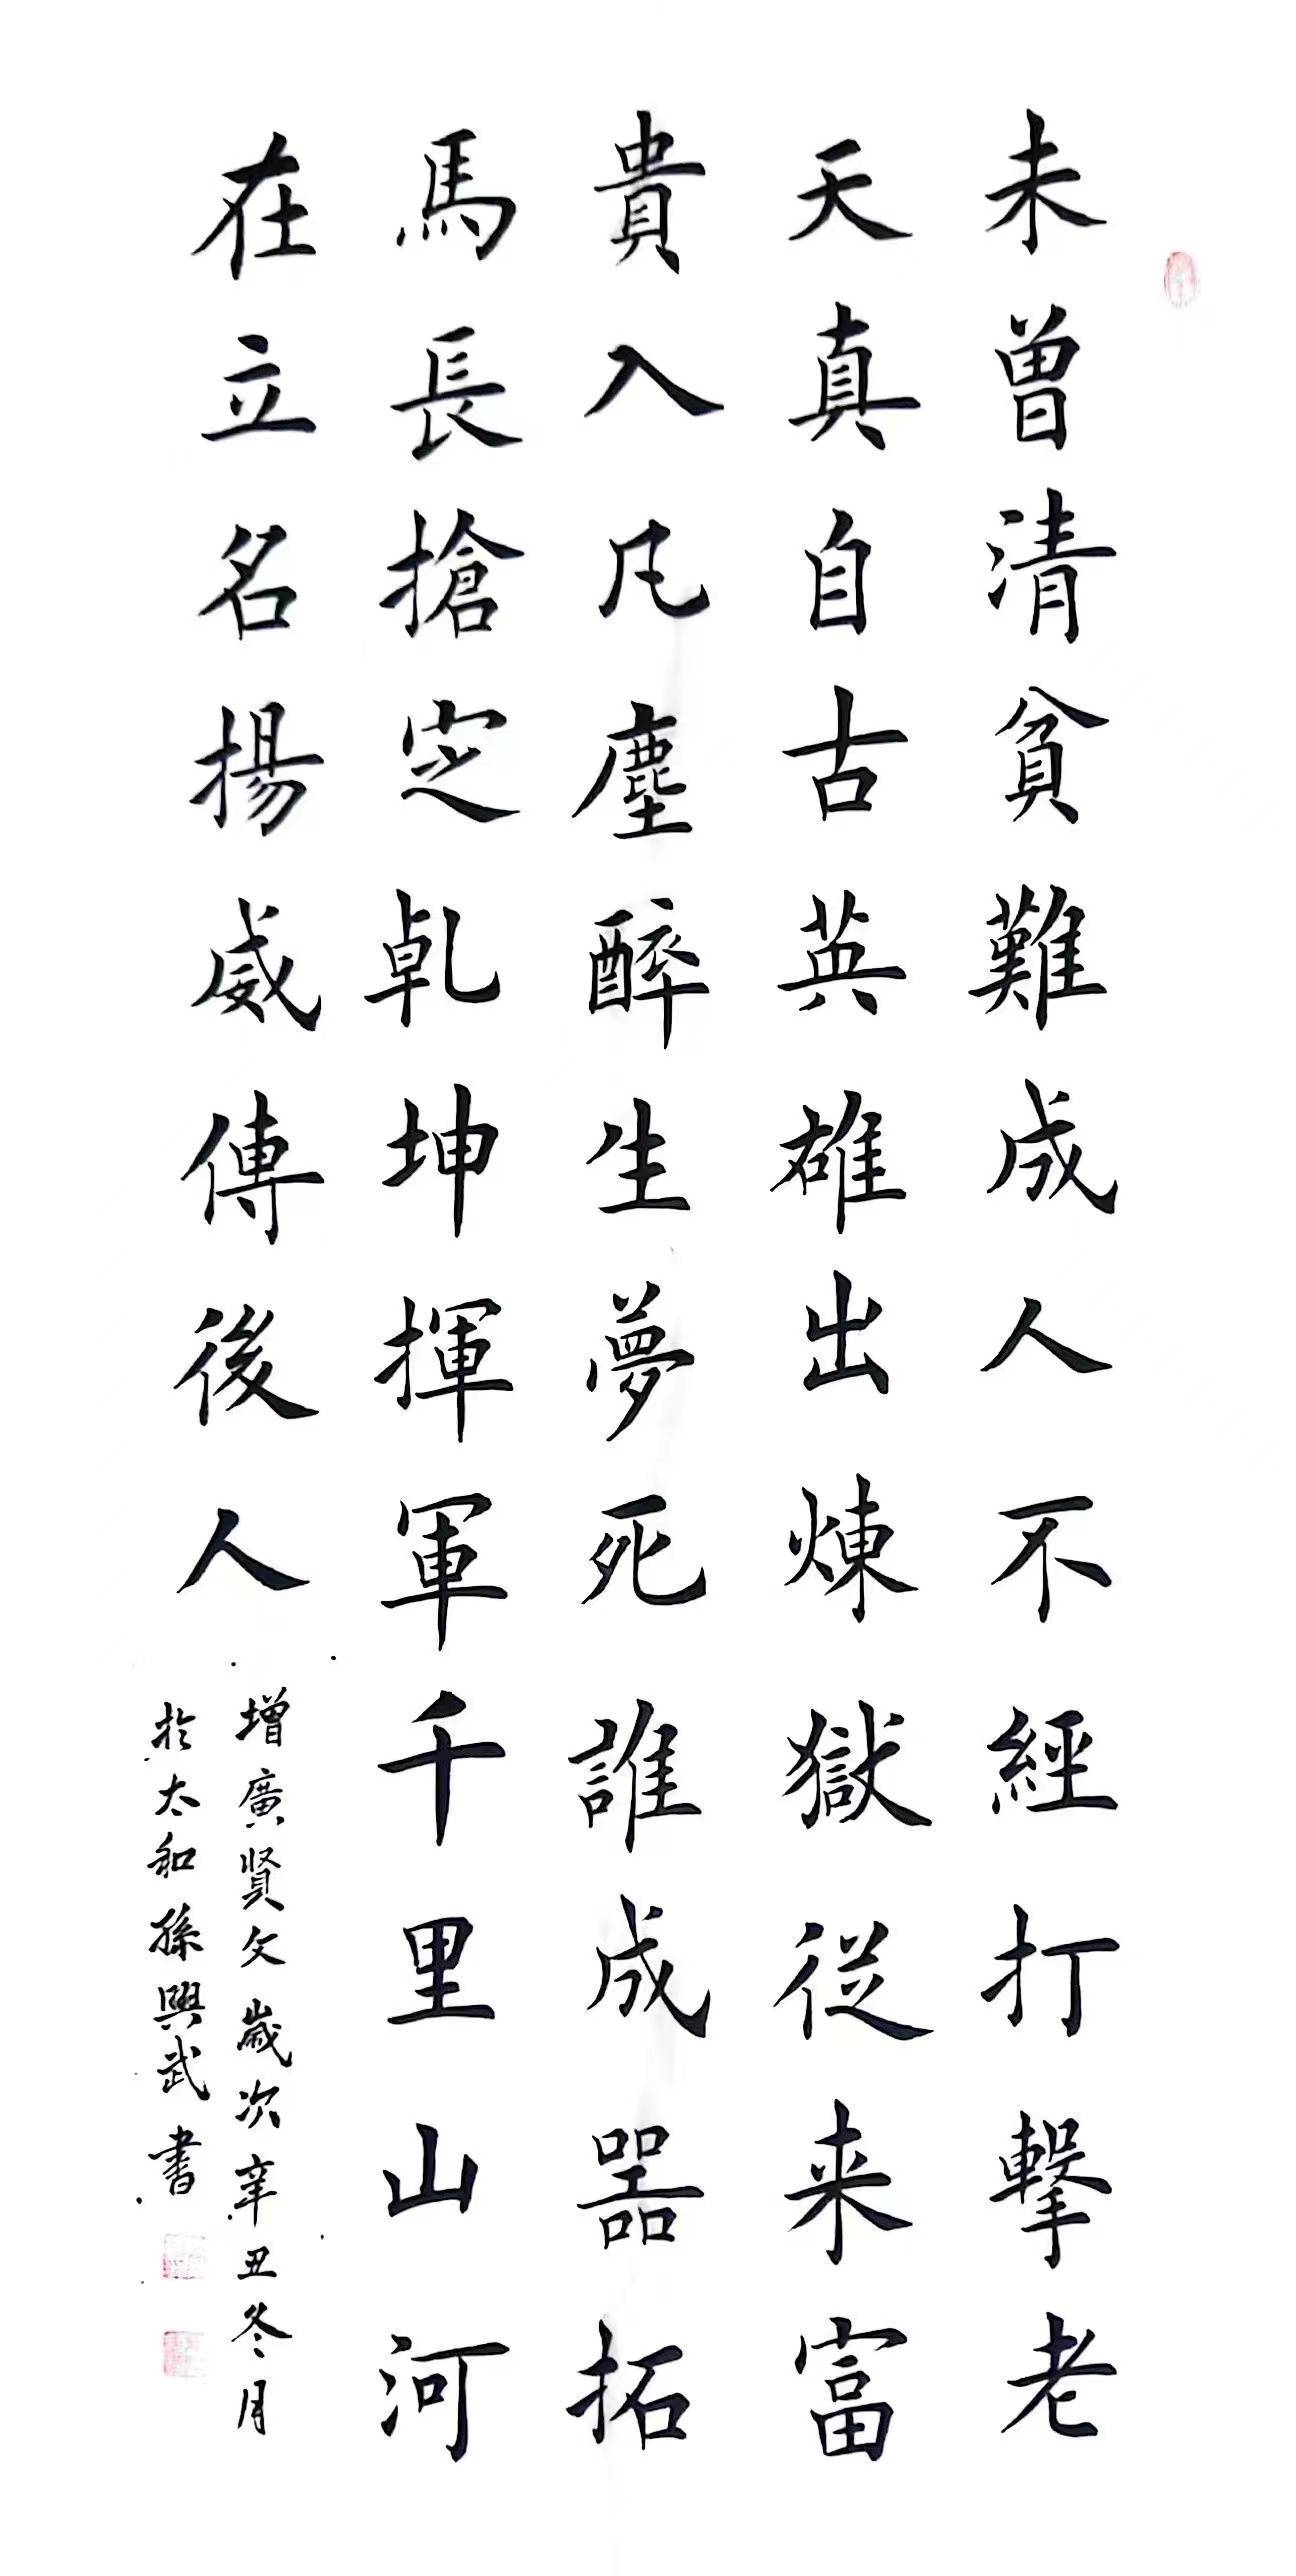 未曾清貧難成人不經打擊老
天真自古英雄出煉獄從来富
貴入凡塵醉生夢死誰成器拓
馬長搶定乹坤揮軍千里山河
在立名揚威傳後人
增廣賢文歲次辛丑冬月
於太和孫興武書